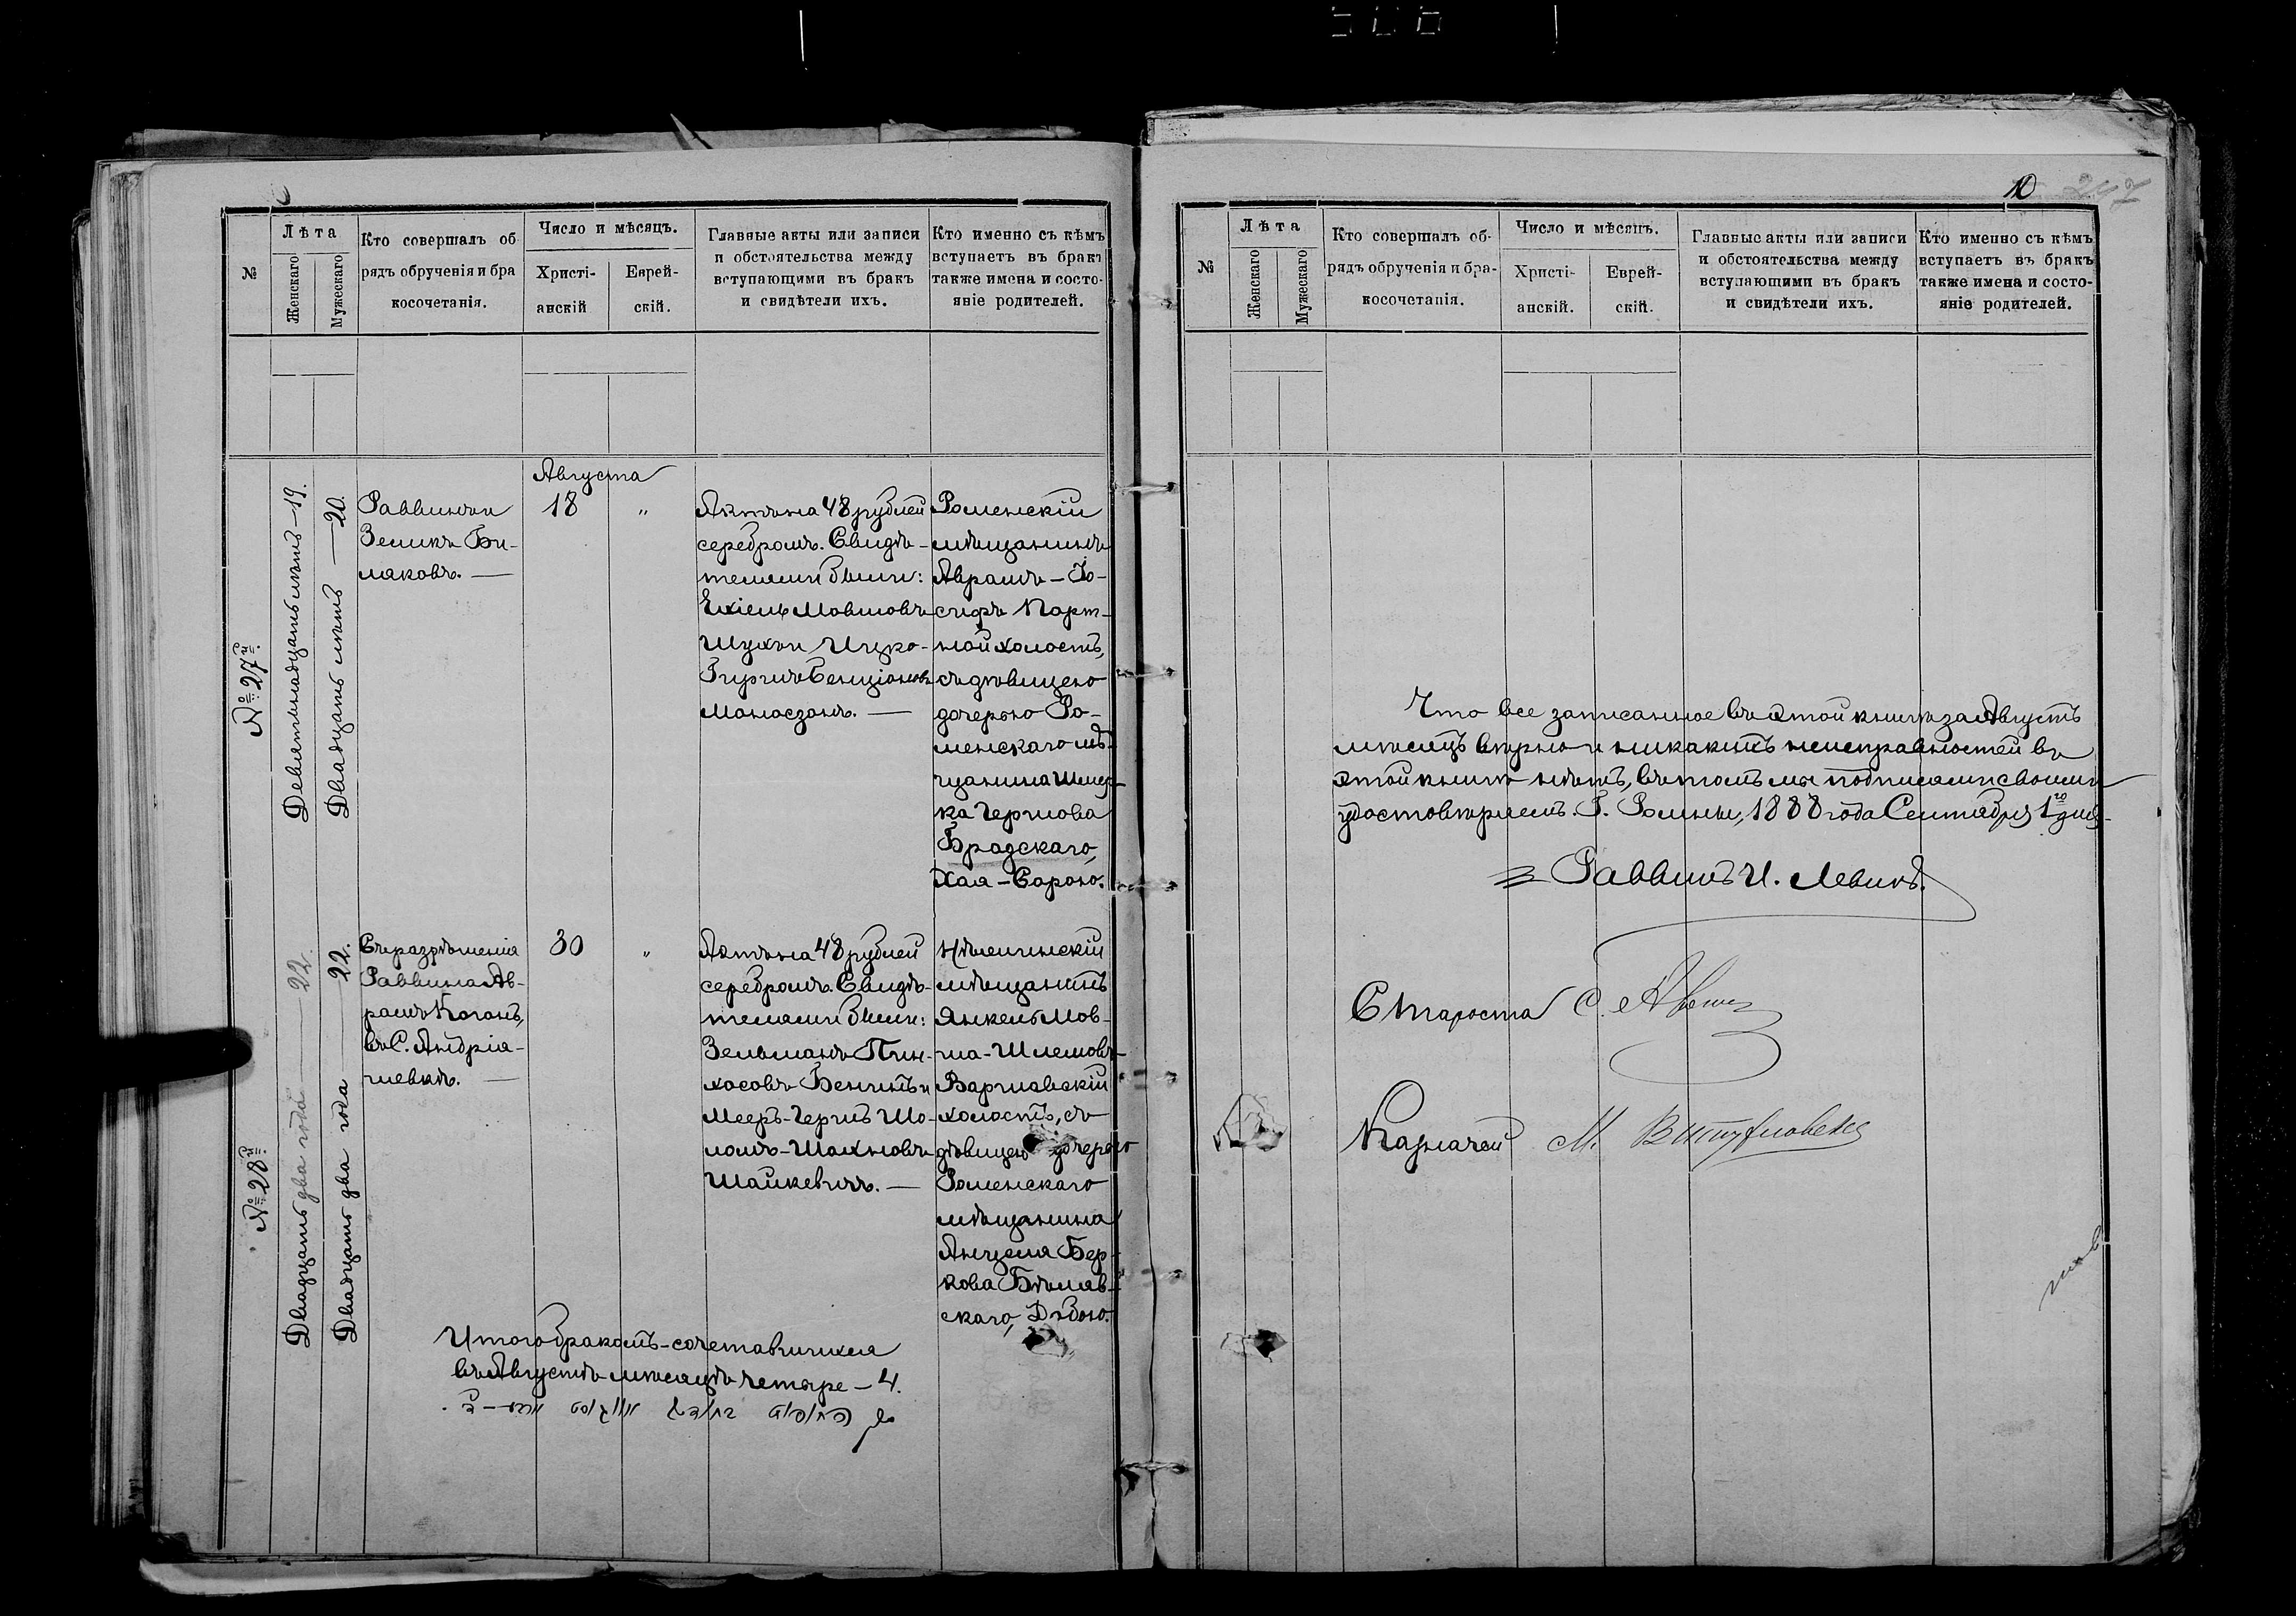 10
№
Лѣта
Женскаго
Мужескаго
Кто совершалъ об
рядъ обрученія и бра
косочетанія.
Число и мѣсяцъ.
Христі-
анскій
Еврей-
скій.
Главные акты или записи
и обстоятельства между
вступающими въ бракъ
и свидѣтели ихъ.
Кто именно съ кѣмъ
вступаетъ въ бракъ
также имена и состо-
яніе родителей.
№ 27й.
Девятнадцать лѣтъ — 19.
Двадцать лѣтъ — 20.
Раввинъ
Зеликъ Би-
ляковъ. —
Августа
18 "
Актъ на 48 рублей
серебромъ. Свидѣ-
телями были:
Ехіель Мовшовъ
Ицко-
Гиршъ Бенціоновъ
Манасзонъ. —
Роменскій
мѣщанинъ
Аврамъ-Іо-
сифъ Порт-
ной холостъ,
съ дѣвицею
дочерью Ро-
менскаго мѣ-
щанина Шмер-
ка Гершова
Брадскаго,
Хая-Сарою.
№ 28й.
Двадцать два года — 22
Двадцать два года — 22.
Съ разрѣшенія
Раввина Аб-
рамъ Коганъ,
въ С. Андрія-
шевкѣ. —
30 "
Актъ на 48 рублей
серебромъ. Свидѣ-
телями были:
Зельманъ Пин-
хосовъ Бенинъ и
Мееръ-Гершъ Шо-
ломъ-Шахновъ
Шайкевичъ. —
Нѣжинскій
мѣщанинъ
Янкель Мов-
ша-Шлемовъ
Варшавскій
холостъ, съ
дѣвицею дочерью
Роменскаго
мѣщанина
Анцеля Бер-
кова Бѣляв-
скаго, Добою.
Итого бракомъ-сочетавшихся
въ Августѣ мѣсяцѣ четыре — 4.
№
Лѣта
Женскаго
Мужескаго
Кто совершалъ об-
рядъ обрученія и бра-
косочетанія.
Число и мѣсяцъ.
Христі-
анскій.
Еврей-
скій.
Главные акты или записи
и обстоятельства между
вступающими въ бракъ
и свидѣтели ихъ.
Кто именно съ кѣмъ
вступаетъ въ бракъ
также имена и состо-
яніе родителей.
Что все записанное въ этой книгѣ за Августъ
мѣсяцъ вѣрно и никакихъ неисправностей въ
этой книгѣ нѣтъ, въ томъ мы подписями своими
удостовѣряемъ. Г. Ромны, 1888 года Сентября 1го дня.
Раввинъ И. Левинъ.
Староста С.
Казначей М.